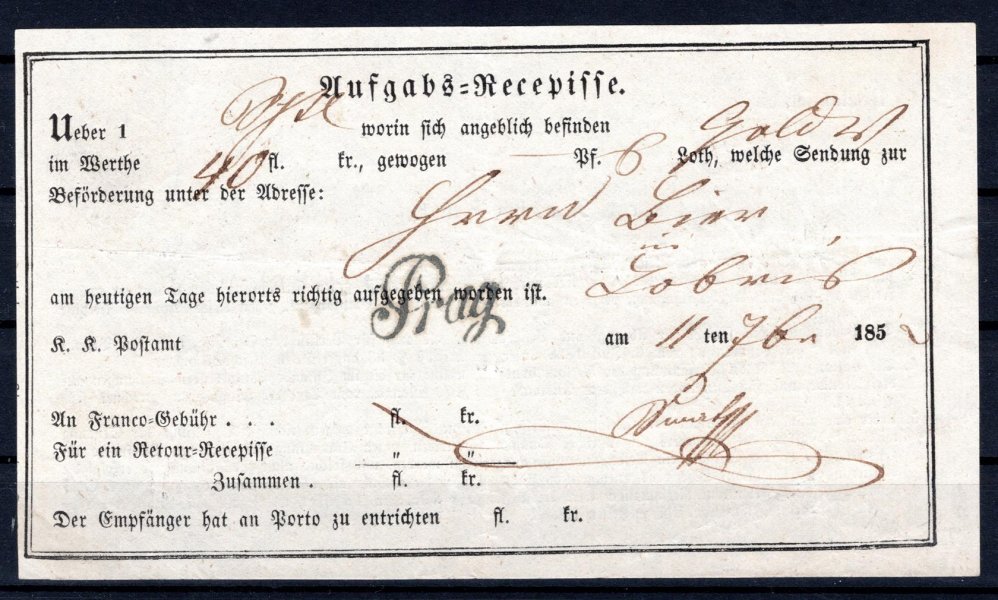 Aufgabs-Recepisse.
Ueber 1 worin sich angeblich befinden Geld
im Werthe 40 fl. kr., gewogen — Pf. 6 Loth, welche Sendung zur
Beförderung unter der Adresse:
Herrn Bier
in
Lobris
am heutigen Tage hierorts richtig aufgegeben worden ist.
Prag
K. K. Postamt am 11 ten 7br 185
An Franco-Gebühr . . . fl. kr.
Für ein Retour-Recepisse „ „
Zusammen . fl. kr.
Der Empfänger hat an Porto zu entrichten fl. kr.